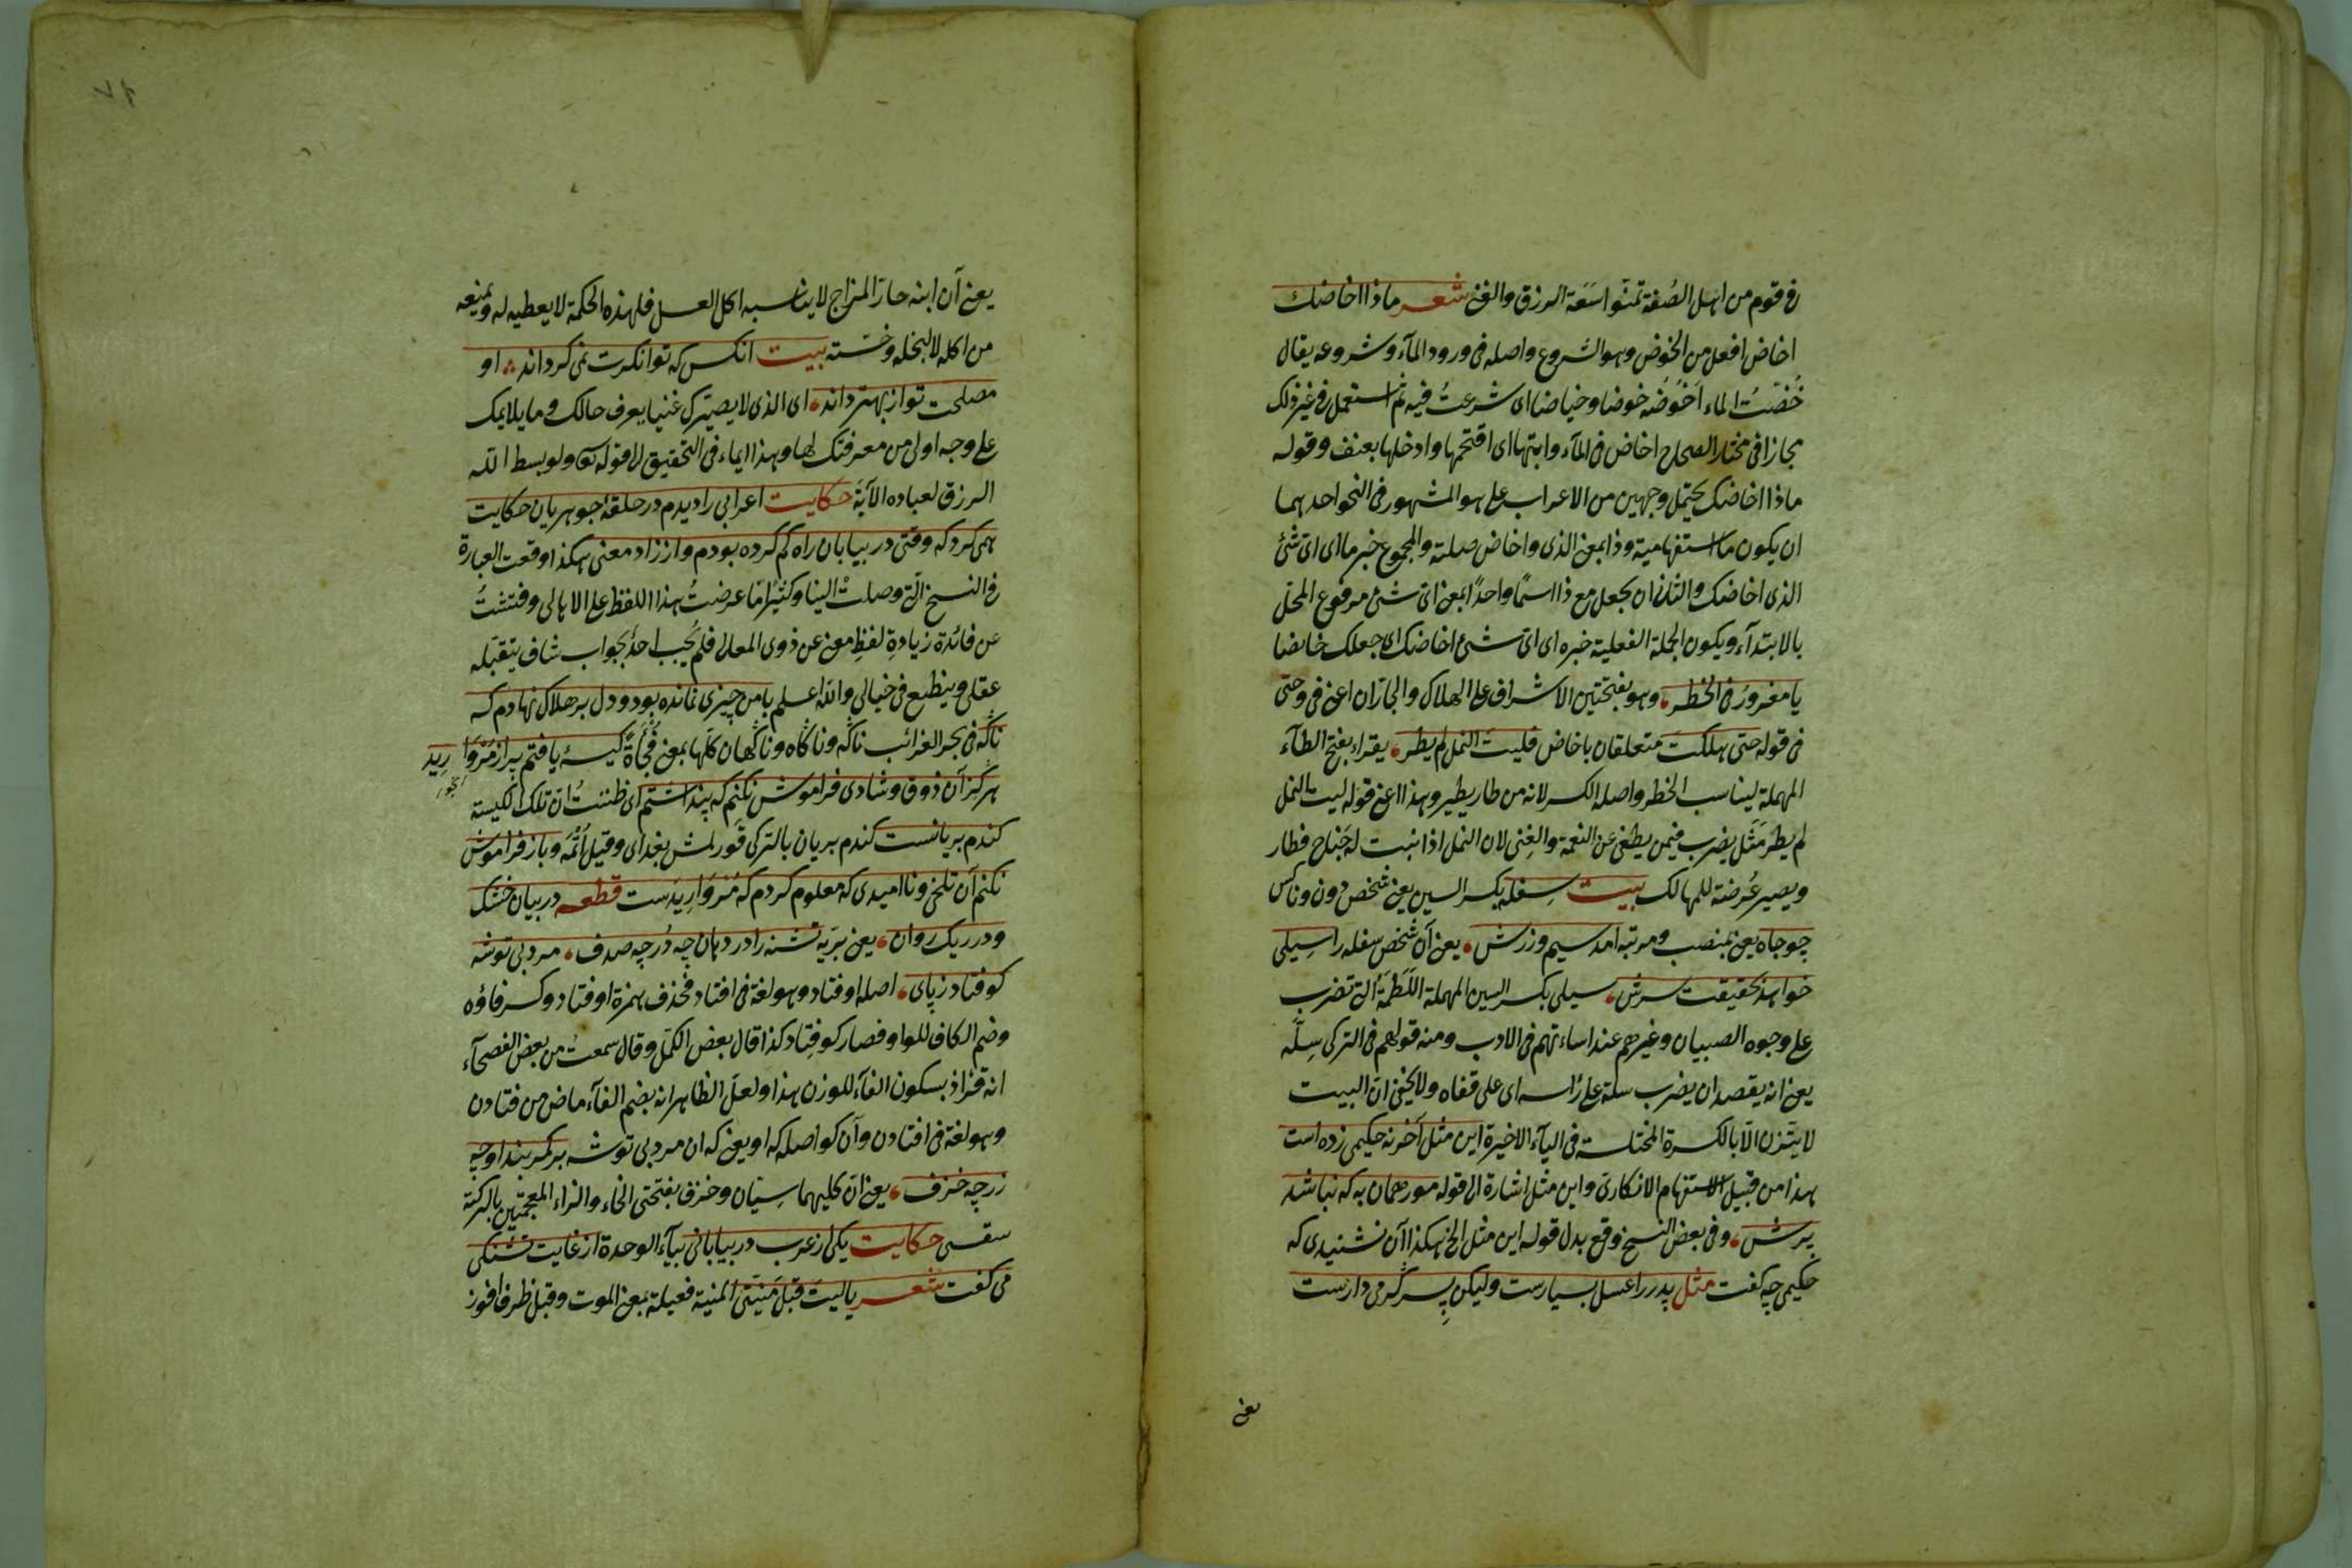 فى قوم من اهل الصُفة تمنّوا سَعَة الرزق والغنى شعر ماذا اخاضك
اخاض افعل من الخوض وهو الشروع واصله فى ورود المآء وشروعه يقال
خُضتُ الماء اَخُوضُه خوضا وخياضا اى شرعتُ فيه ثم استعمل فى غير ذلك
مجازا فى مختار الصحاح اخاض فى المآء دابتها اى اقتحمها وادخلها بعنف وقوله
ماذا اخاضك يحتمل وجهين من الاعراب على هو المشهور فى النحو احدهما
ان يكون ما استفهامية وذا بمعنى الذى واخاض صلته والمجموع خبر ما اى اىّ شئ
الذى اخاضك والثانى ان يجعل مع ذا اسمًا واحدًا بمعنى اىّ شئ مرفوع المحلّ
بالابتدآء ويكون الجملة الفعلية خبره اى اىّ شئ اخاضك اى جعلك خايضا
يا مغرورُ فى الخطر وهو بفتحتين الاشراف على الهلاك والجارّان اعنى فى وحتى
فى قوله حتى هلكتَ متعلقان باخاض فليتَ النمل لم يطر يقراء بفتح الطآء
المهملة ليناسب الخطر واصله الكسر لانه من طار يطير وهذا اعنى قوله ليت النمل
لم يطر مَثَل يضرب فيمن يطغى عن النعمة والغِنى لان النمل اذا نبت له جَناح فطار
ويصير عُرضة للمهالك بيت سِفله بكسر السين يعنى شخص دون وناكس
چو جاه يعنى بمنصب ومرتبه آمد سيم وزرش يعنى آن شخص سفله را سِيلى
خواهد بحقيقت سرش سيلى بكسر السين المهملة اللَطمَة التى تضرب
على وجوه الصبيان وغيرهم عند اساءتهم فى الادب ومنه قولهم فى التركى سِلّه
يعنى انه يقصد ان يضرب سلة على رأسه اى على قفاه ولا يخفى انّ البيت
لا يتّزن الّا بالكسرة المختلسة فى اليآء الاخيرة اين مثل آخر نه حكيمى زده است
هذا من قبيل الاستفهام الانكارى واين مثل اشارة الى قوله مور همان به كه نباشد
پرش وفى بعض النسخ وقع بدل قوله اين مثل الخ هكذا آن نشنيدى كه
حكيمى چه كفت مثل پدر را عسل بسيارست وليكن پسر گرمى دارست
يعنى
يعنى آن ابنه حارّ المزاج لا يناسبه اكل العسل فلهذه الحكمة لا يعطيه له ويمنعه
من اكله لا لبخله وخسّته بيت آنكس كه توانكرت نمى كرداند او
مصلحت تو از تو بهتر داند اى الذى لا يصيّرك غنيا يعرف حالك وما يلايمك
على وجه اولى من معرفتك لها وهذا ايماء فى التحقيق الى قوله تعَ ولو بسط اللّه
الرزق لعباده الآية حكايت اعرابى را ديدم در حلقۀ جوهريان حكايت
همى كرد كه وقتى در بيابان راه كم كرده بودم واز زاد معنى هكذا وقعت العبارة
فى النسخ الّتى وصلت الينا وكثيرًا ما عرضتُ هذا اللفظ على الاهالى وفتشتُ
عن فائدة زيادةِ لفظِ معنى عن ذوى المعالى فلم يُجِب احدٌ بجواب شاف يتقبّله
عقلى وينطبع فى خيالى واللّه اعلم با من چيزى نمانده بود ودل بر هلاك نهادم كه
ناگه فى بحر الغرائب ناگه وناگاه وناگهان كلّها بمعنى فُجأَةً كيسۀ يافتم پر از مُرْوَارِيد
هرگز آن ذوق وشادى فراموش نكنم كه پنداشتم اى ظننتُ انّ تلك الكيسة
كندم بريانست كندم بريان بالتركى قَورلمش بغداى وقيل اُتُمَه وباز فراموش
نكنم آن تلخى ونااميدى كه معلوم كردم كه مُرْوَارِيدَست قطعه در بيابان خشك
ودر ريك روان يعنى بريّه تشنه را در دهان چه دُر چه صدف مرد بى توشه
كو فتاد زپاى اصله اوفتاد وهو لغة فى افتاد فحذف همزة اوفتاد وكسر فاؤه
وضم الكاف للواو فصار كو فِتاد كذا قال بعض الكمّل وقال سمعتُ من بعض الفصحآء
انه قراءَ بسكون الفآء للوزن هذا ولعلّ الظاهر انه بضم الفآء ماض من فتادن
وهو لغة فى افتادن وآن كو اصله كه او يعنى كه ان مرد بى توشه بر كمربند او چه
زر چه خزف يعنى انّ كليهما سِيّان وخزف بفتحتى الخاء والزاء المعجمتين بالتركية
سقسى حكايت يكى از عرب در بيابانى بيآء الوحدة از غايت تشنكى
مى كفت شعر ياليت قبل مَنِيَّتى المنية فعيلة بمعنى الموت وقبل ظرف افوز